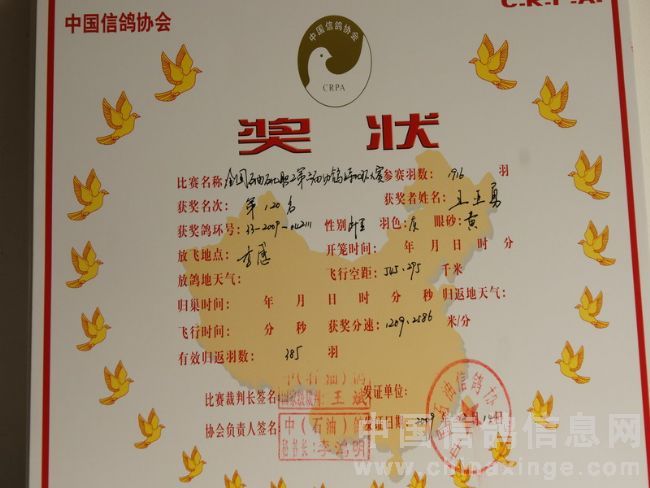 中国信鸽协会
C.R.P.A.
中国信鸽协会
CRPA
奖状
比赛名称: 全国石油 参赛羽数: 916 羽
获奖名次: 第120名 获奖者姓名: 王玉勇
获奖鸽环号: 33-2009- 性别 羽色: 灰 眼砂: 黄
放飞地点: 孝感 开笼时间: 年 月 日 时 分
放鸽地天气: 飞行空距: 545.295 千米
归巢时间: 年 月 日 时 分 秒 归返地天气:
飞行时间: 分 秒 获奖分速: 1209.2586 米/分
有效归返羽数: 385 羽
比赛裁判长签名: 王斌 发证单位:
协会负责人签名: 发证日期: 2009
中(石油)
秘书长: 李鸿明
石油信鸽协
中国信鸽信息网
www.chinaxinge.com